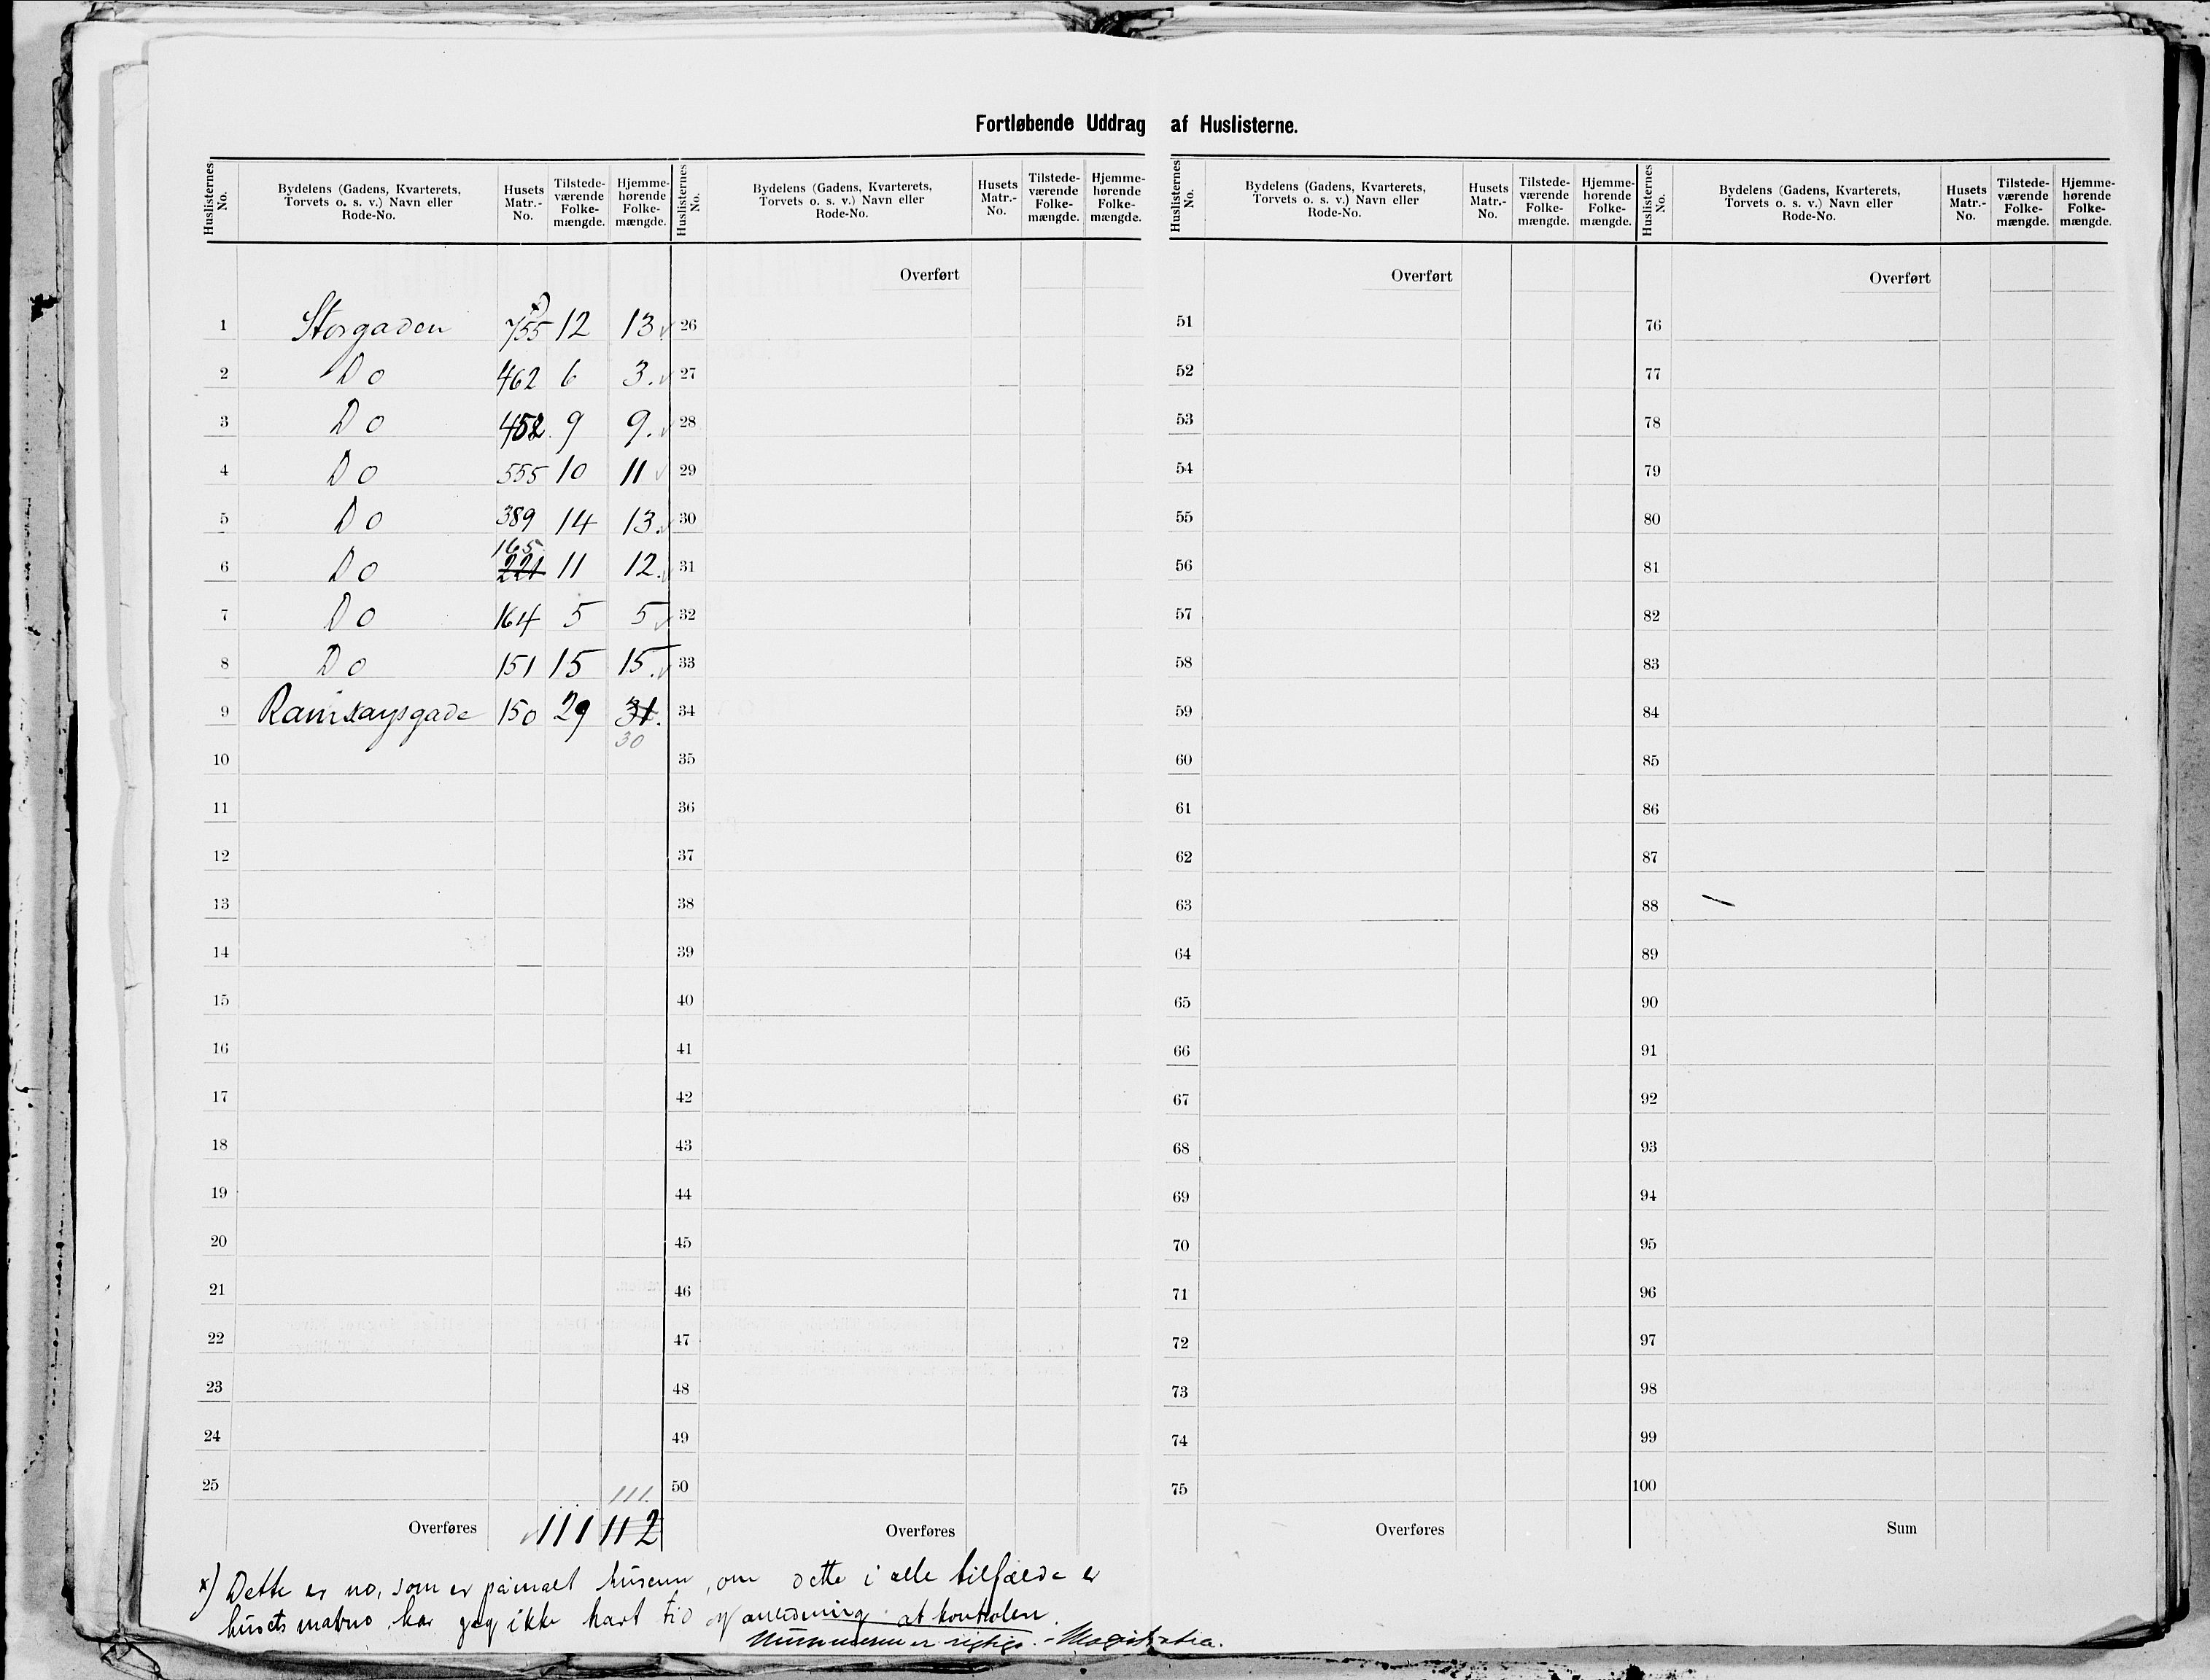 Fortløbende Uddrag af Huslisterne.
Huslisternes No. Bydelens (Gadens, Kvarterets, Torvets o. s. v.) Navn eller Rode-No. Husets Matr.-No. Tilstede-værende Folke-mængde. Hjemme-hørende Folke-mængde.
Huslisternes No. Bydelens (Gadens, Kvarterets, Torvets o. s. v.) Navn eller Rode-No. Husets Matr.-No. Tilstede-værende Folke-mængde. Hjemme-hørende Folke-mængde.
Huslisternes No. Bydelens (Gadens, Kvarterets, Torvets o. s. v.) Navn eller Rode-No. Husets Matr.-No. Tilstede-værende Folke-mængde. Hjemme-hørende Folke-mængde.
Huslisternes No. Bydelens (Gadens, Kvarterets, Torvets o. s. v.) Navn eller Rode-No. Husets Matr.-No. Tilstede-værende Folke-mængde. Hjemme-hørende Folke-mængde.
Overført Overført Overført
x)
1 Storgaden 755 12 13 26 51 76
2 Do 462 6 3. 27 52 77
3 Do 452 9 9. 28 53 78
4 Do 555 10 11 29 54 79
5 Do 389 14 13. 30 55 80
165
6 Do 221 11 12. 31 56 81
7 Do 164 5 5 32 57 82
8 Do 151 15 15. 33 58 83
9 Ramsaysgade 150 29 31. 34 59 84
30
10 35 60 85
11 36 61 86
12 37 62 87
13 38 63 88
14 39 64 89
15 40 65 90
16 41 66 91
17 42 67 92
18 43 68 93
19 44 69 94
20 45 70 95
21 46 71 96
22 47 72 97
23 48 73 98
24 49 74 99
25 111. 50 75 100
Overføres 111 112 Overføres Overføres Sum
x) Dette er no, som er påmalt husene, om dette i alle tilfælde er
husets matrno har jeg ikke havt tid og anledning at kontrolere.
Nummerne er rigtige.